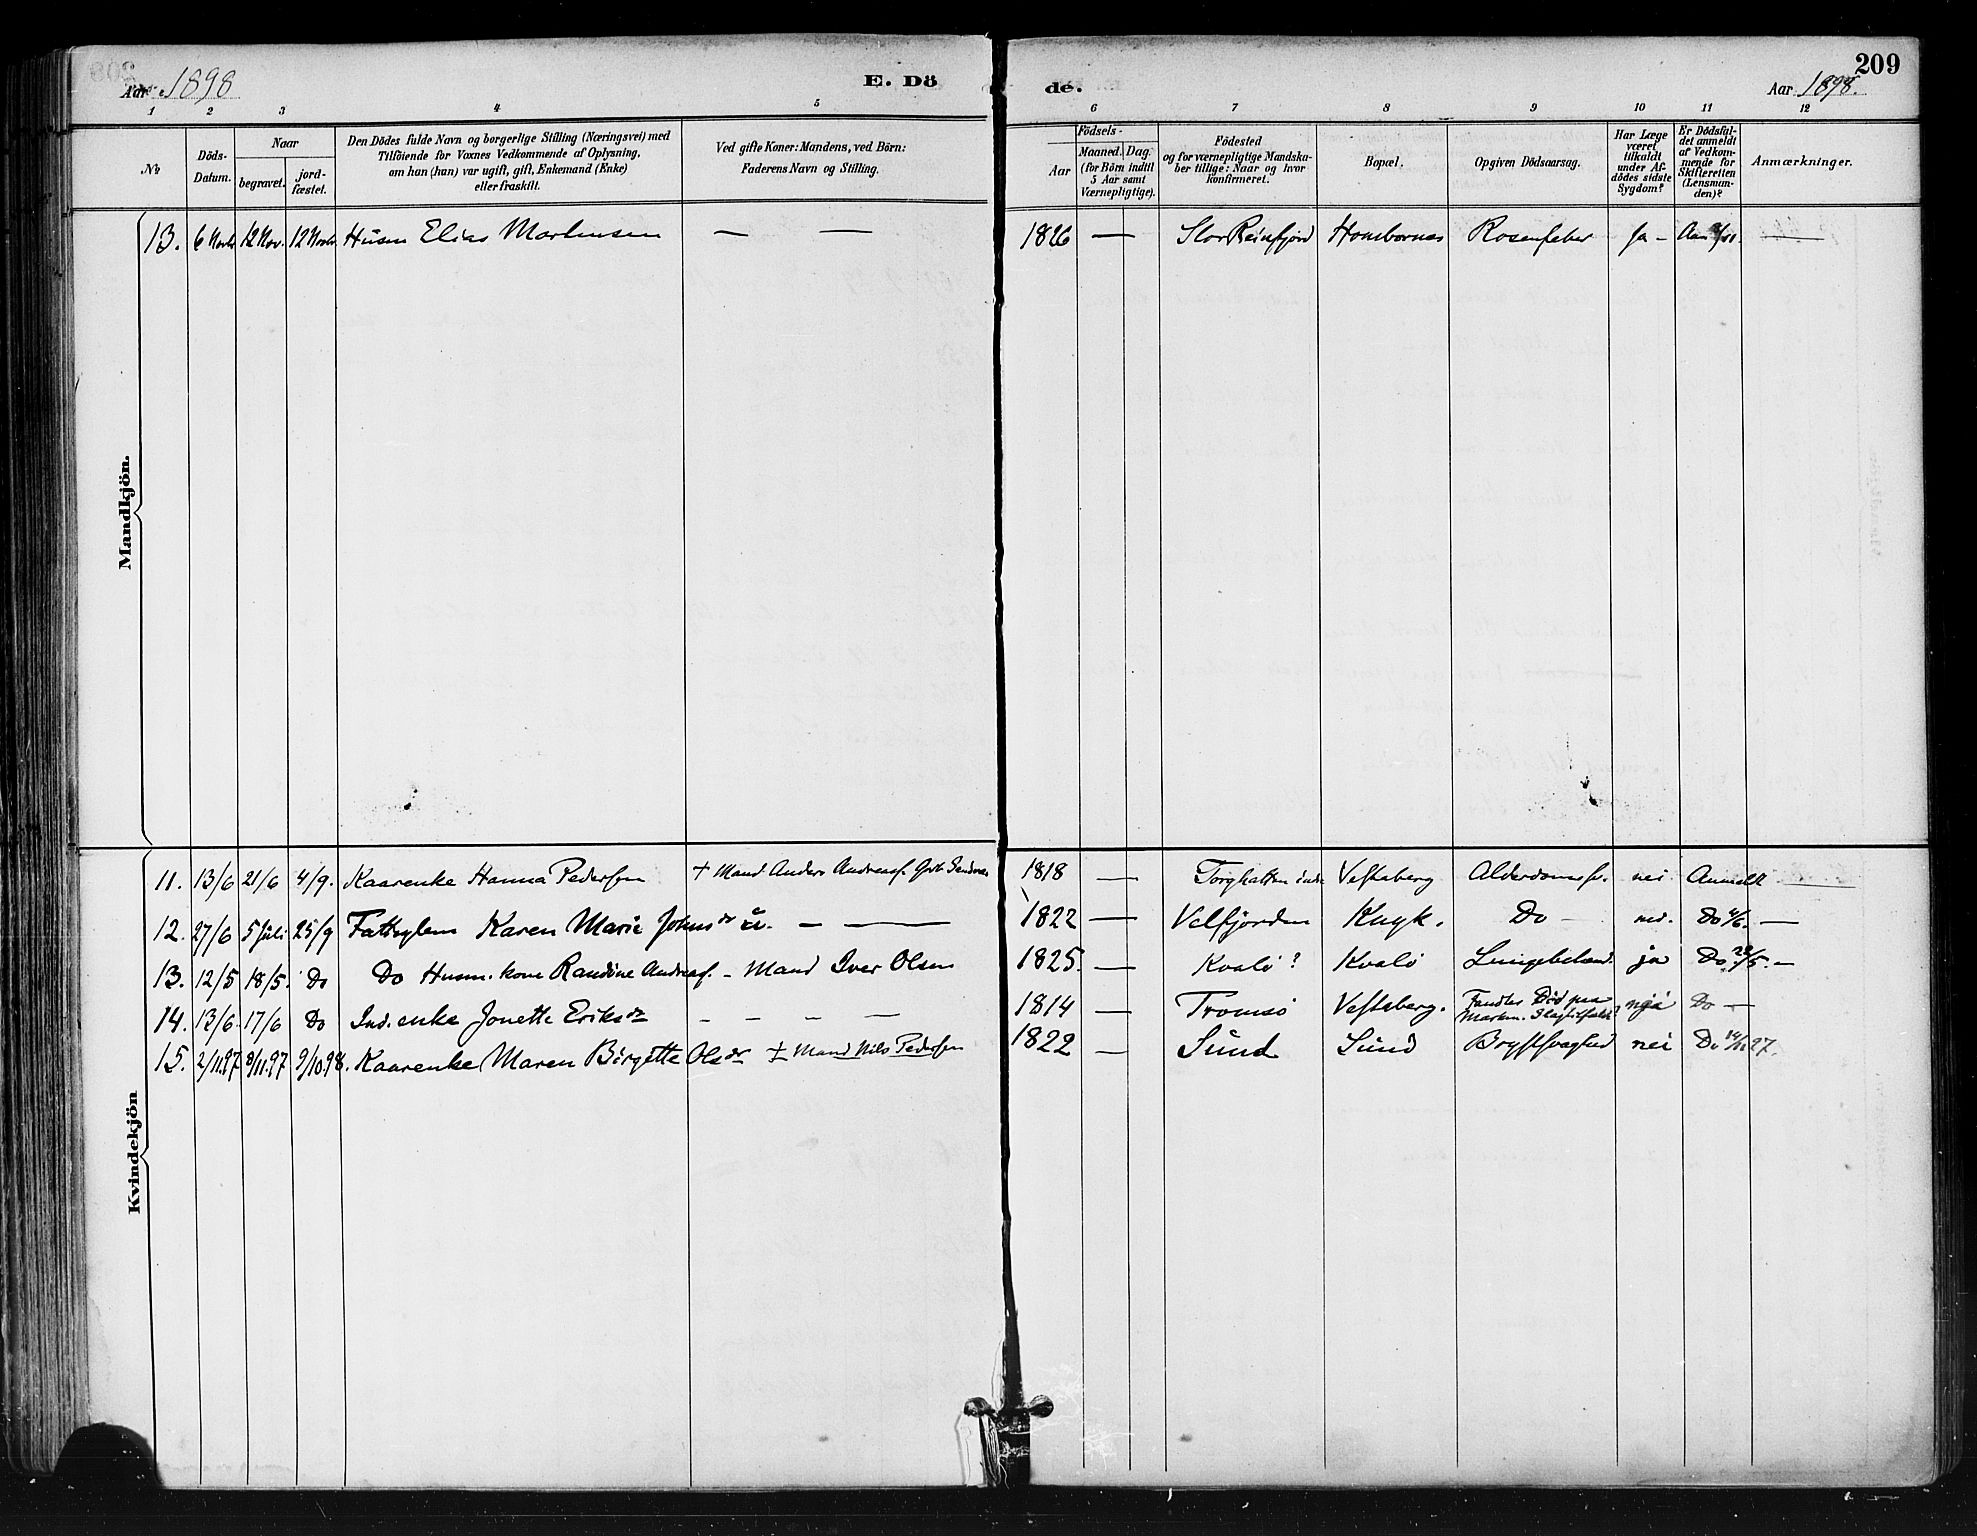 Aar 1898
E. Dö
de.
209
Aar 1898.
1 2 3 4 5 6 7 8 9 10 11 12
Nr
Döds-
Datum.
Naar
begravet.
jord-
fæstet.
Den Dödes fulde Navn og borgerlige Stilling (Næringsvei) med
Tilföiende for Voxnes Vedkommende af Oplysning,
om han (hun) var ugift, gift, Enkemand (Enke)
eller fraskilt.
Ved gifte Koner: Mandens, ved Börn:
Faderens Navn og Stilling.
Födsels-
Aar
Maaned. Dag.
(for Börn indtil
5 Aar samt
Værnepligtige).
Födested
og for værnepligtige Mandska-
ber tillige: Naar og hvor
konfirmeret.
Bopæl.
Opgiven Dödsaarsag.
Har Læge
været
tilkaldt
under Af-
dödes sidste
Sygdom?
Er Dödsfal-
det anmeldt
af Vedkom-
mende for
Skifteretten
(Lensman-
den)?
Anmærkninger.
Mandkjön.
13. 6 Novbr 12 Nov. 12 Novbr Husm Elias Martensen — — 1826 — Stor Reinfjord Hombornes Rosenfeber Ja —
Kvindekjön
11. 13/6 21/6 4/9. Kaarenke Hanna Pedersen + Mand Anders Andreass. 1818 — Torghatten Vestaberg Alderdomss. nei Anmeldt —
12. 27/6 5 Juli 25/9 Fattiglem Karen Marie Johns dr u. — — 1822 — Velfjorden Kuyk. Do — nei. Do 4/6. —
13. 12/5 18/5. Do Do Husm. kone Randine Andreas. — Mand Iver Olsen 1825. — Kvalö? Kvalö Lungebetænd. ja Do 23/5. —
14. 13/6. 17/6 Do Ind. enke Jonette Eriks dr — — — — 1814 — Tromsö Vestaberg. Fandtes Död paa Marken. Do —
15. 2/11.97 8/11.97 9/10.98. Kaarenke Maren Birgitte Ols dr + Mand Nils Pedersen 1822 — Sund Sund Brystsvaghed nei Do